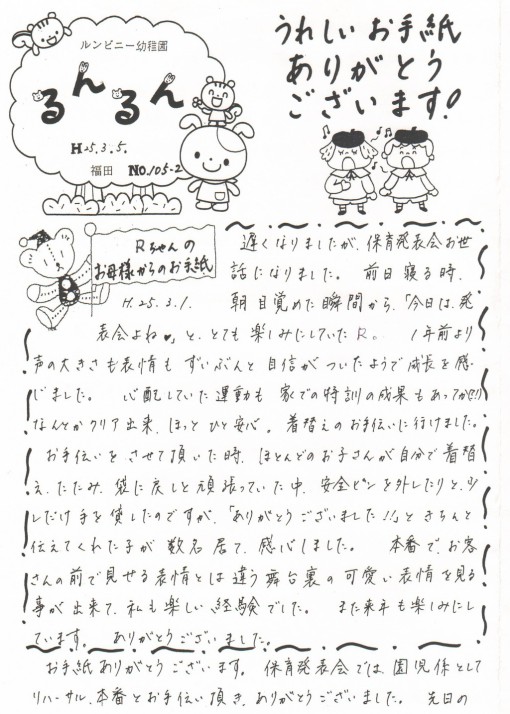 ルンビニー幼稚園
るんるん
H25.3.5.
福田 No.105-2
うれしいお手紙
ありがとう
ございます!
Rちゃんの
お母様からのお手紙
H.25.3.1.
遅くなりましたが、保育発表会お世
話になりました。 前日寝る時、
朝目覚めた瞬間から、「今日は、発
表会よね♥」と、とても楽しみにしていたR。 1年前より
声の大きさも表情も ずいぶんと自信がついたようで成長を感
じました。 心配していた運動も 家での特訓の成果もあってか(!?)
なんとかクリア出来、ほっとひと安心。着替えのお手伝いに行けました。
お手伝いを させて頂いた時、ほとんどのお子さんが自分で着替
え、たたみ、袋に戻しと頑張っていた中、安全ピンを外したりと、少
しだけ手を貸したのですが、「ありがとうございました!!」ときちんと
伝えてくれた子が 数名居て、感心しました。 本番で、お客
さんの前で見せる表情とは違う舞台裏の可愛い表情を見る
事が出来て、私も楽しい経験でした。 また来年も楽しみにし
ています。 ありがとうございました。
お手紙ありがとうございます。 保育発表会では、園児係として
リハーサル、本番とお手伝い頂き、ありがとうございました。 先日の